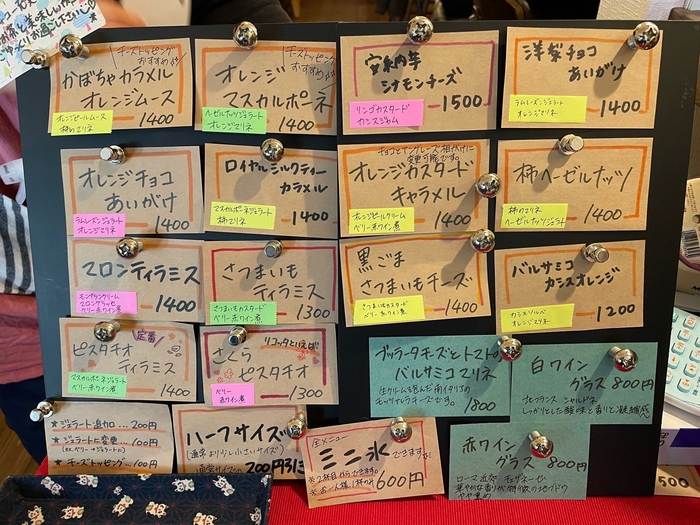 チーズトッピング
おすすめ
かぼちゃカラメル
オレンジムース
オレンジピールムース
柿のマリネ
1400
チーズトッピング
おすすめ
オレンジ
マスカルポーネ
ヘーゼルナッツジェラート
オレンジマリネ
1400
安納芋
シナモンチーズ
リンゴカスタード
カシスジャム
1500
洋梨チョコ
あいがけ
ラムレーズンジェラート
オレンジマリネ
1400
オレンジチョコ
あいがけ
ラムレーズンジェラート
オレンジマリネ
1400
ロイヤルミルクティー
カラメル
マスカルポーネジェラート
柿マリネ
1400
変更可能です。
オレンジカスタード
キャラメル
オレンジピールクリーム
ベリー赤ワイン煮
1400
柿ヘーゼルナッツ
柿のマリネ
ヘーゼルナッツジェラート
1400
マロンティラミス
モンブランクリーム
マロングラッセ
ベリー赤ワイン煮
1400
さつまいも
ティラミス
さつまいもカスタード
ベリー赤ワイン煮
1300
黒ごま
さつまいもチーズ
さつまいもカスタード
ベリー赤ワイン煮
1400
バルサミコ
カシスオレンジ
カシスソルベ
オレンジマリネ
1200
定番!
ピスタチオ
ティラミス
マスカルポーネジェラート
ベリー赤ワイン煮
1400
リコッタといえば
さくら
ピスタチオ
ベリー
赤ワイン煮
1300
ブッラータチーズとトマトの
バルサミコマリネ
生クリームを包んだ南イタリアの
モッツァレラチーズです。
1800
白ワイン
グラス 800円
シャルドネ
しっかりとした酸味と香りと凝縮感
★ジェラート追加…200円
★ジェラートに変更…100円
★チーズトッピング…100円
ハーフサイズ
(通常より少し小さいサイズ)
通常サイズの200円引き
全メニュー
ミニ氷できます。
※2杯目からできます。
※お一人様1杯のみ
600円
赤ワイン
グラス 800円
500